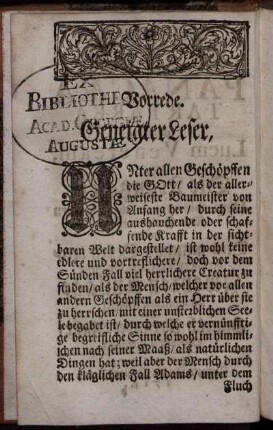 EX
BIBLIOTHE
ACAD. GEORGIÆ
AUGUSTÆ.
Vorrede.
Geneigter Leser,
UNter allen Geschöpffen
die GOtt / als der aller-
weiseste Baumeister von
Anfang her / durch seine
aushauchende oder schaf-
fende Krafft in der sicht-
baren Welt dargestellet / ist wohl keine
edlere und vortreflichere / doch vor dem
Sünden Fall viel herrlichere Creatur zu
finden / als der Mensch / welcher vor allen
andern Geschöpffen als ein Herr über sie
zu herrschen / mit einer unsterblichen See-
le begabet ist / durch welche er vernünffti-
ge begreifliche Sinne so wohl im himmli-
schen nach seiner Maaß / als natürlichen
Dingen hat ; weil aber der Mensch durch
den kläglichen Fall Adams / unter dem
Fluch